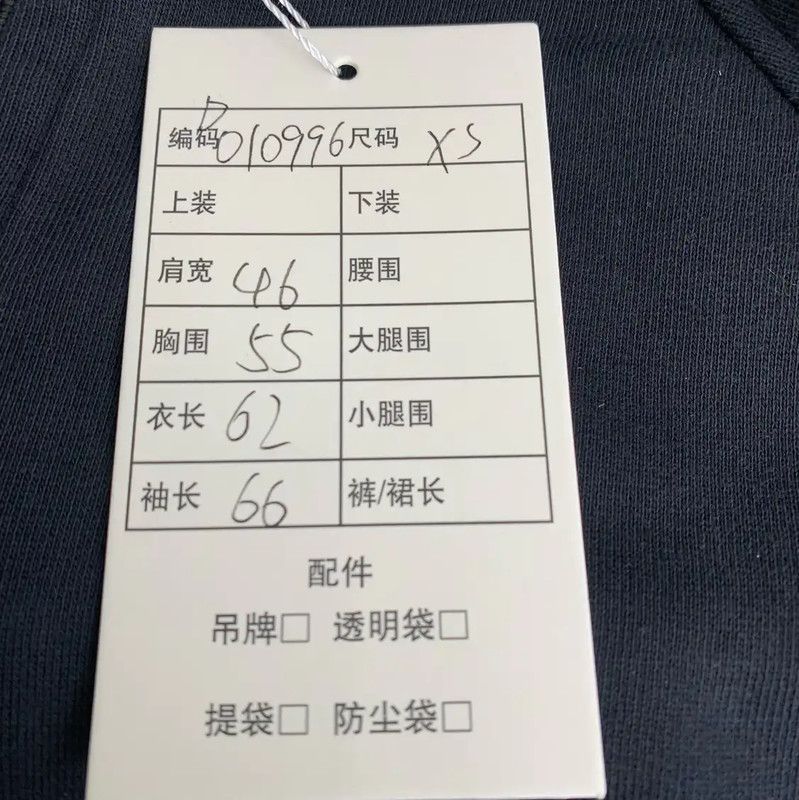 编码 D010996 尺码 XS
上装 下装
肩宽 46 腰围
胸围 55 大腿围
衣长 62 小腿围
袖长 66 裤/裙长
配件
吊牌□ 透明袋□
提袋□ 防尘袋□